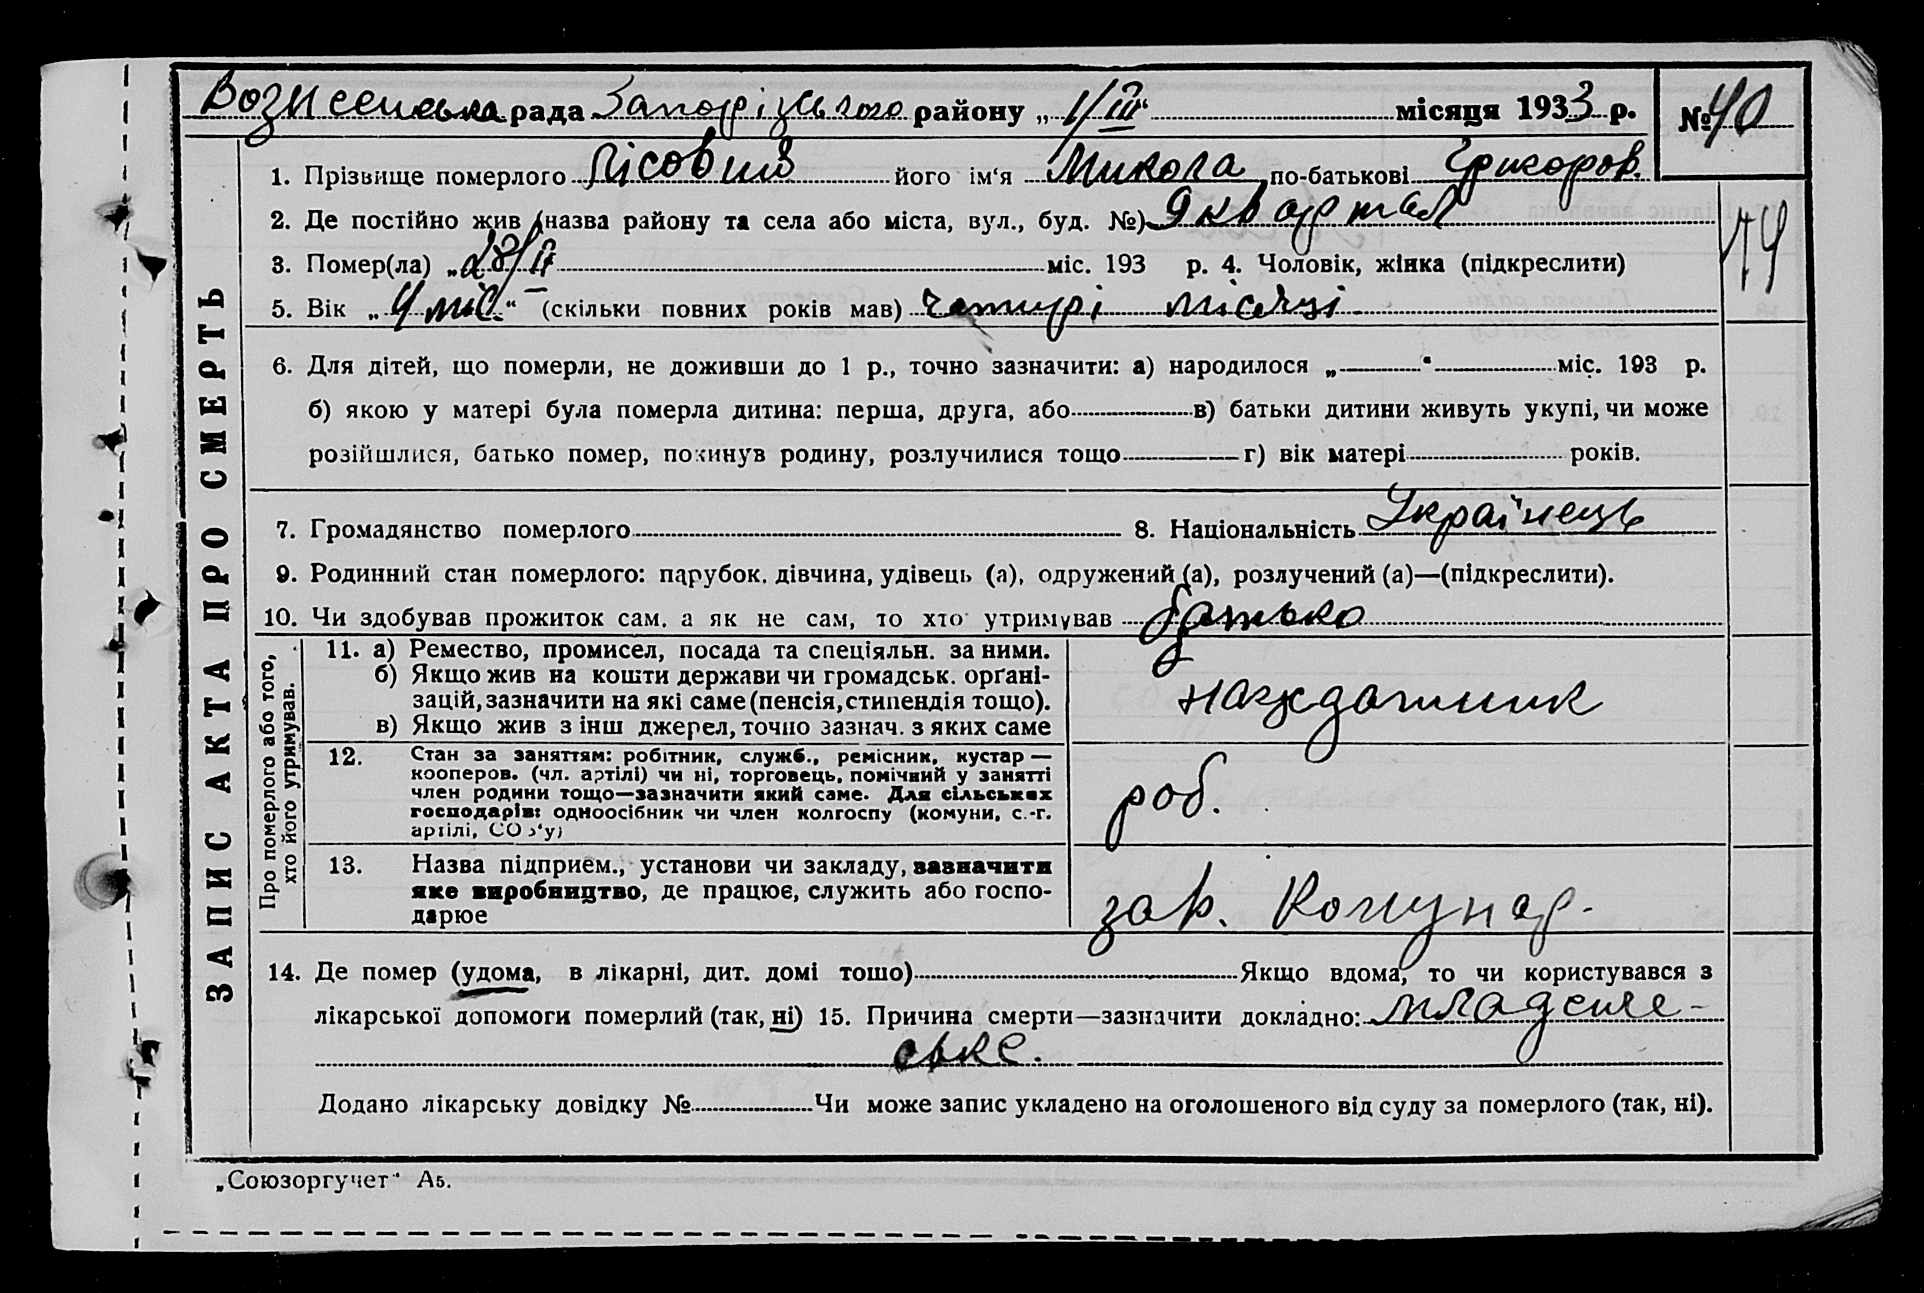 Вознесенська рада Запорізького району „ 1/III “ місяця 1933 р. № 40
1. Прізвище померлого Лісовий його ім‘я Микола по-батькові Григоров.
2. Де постійно жив (назва району та села або міста, вул., буд. №) 9 квартал
74
3. Помер(ла) „ 28/II міс. 193 р. 4. Чоловік, жінка (підкреслити)
5. Вік „ 4 міс. “ (скільки повних років мав) чотирі місяці
6. Для дітей, що померли, не доживши до 1 р., точно зазначити: а) народилося „ “ міс. 193 р.
б) якою у матері була померла дитина: перша, друга, або в) батьки дитини живуть укупі, чи може
розійшлися, батько помер, покинув родину, розлучилися тощо г) вік матері років.
7. Громадянство померлого 8. Національність Українець
9. Родинний стан померлого: парубок, дівчина, удівець (а), одружений (а), розлучений (а)—(підкреслити).
10. Чи здобував прожиток сам, а як не сам, то хто утримував батько
ЗАПИС АКТА ПРО СМЕРТЬ
Про померлого або того,
хто його утримував.
11. а) Ремество, промисел, посада та спеціяльн. за ними.
б) Якщо жив на кошти держави чи громадськ. орґані-
зацій, зазначити на які саме (пенсія, стипендія тощо).
в) Якщо жив з інш джерел, точно зазнач. з яких саме
наждатник
12. Стан за заняттям: робітник, служб., ремісник, кустар —
кооперов. (чл. артілі) чи ні, торговець, помічний у занятті
член родини тощо—зазначити який саме. Для сільських
господарів: одноосібник чи член колгоспу (комуни, с.-г.
артілі, СОЗ‘у)
роб.
13. Назва підприєм., установи чи закладу, зазначити
яке виробництво, де працює, служить або госпо-
дарює
зав. Комунар.
14. Де помер (удома, в лікарні, дит. домі тощо) Якщо вдома, то чи користувався з
лікарської допомоги померлий (так, ні) 15. Причина смерти—зазначити докладно: младенче-
ське.
Додано лікарську довідку № Чи може запис укладено на оголошеного від суду за померлого (так, ні).
„Союзоргучет“ А5.